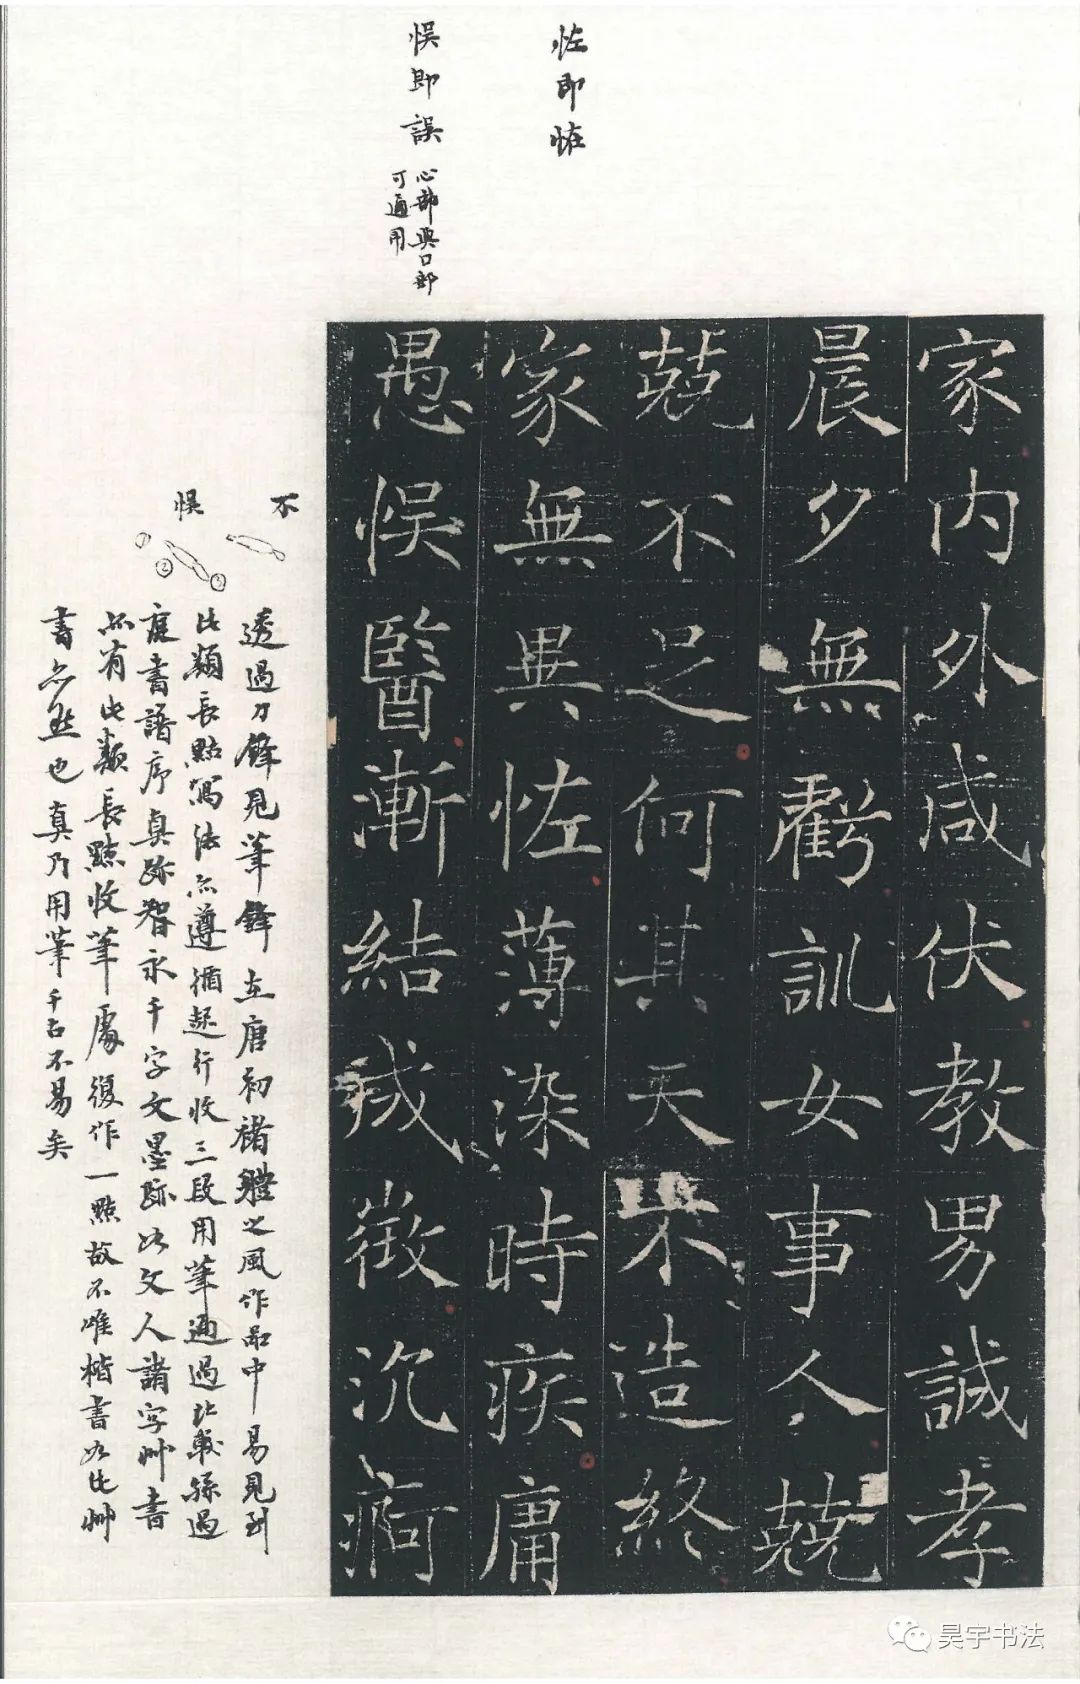 恠即恠
悮即誤
心部與口部
可通用
家内外咸伏教男誠孝
晨夕無虧訓女事人兢
兢不足何其天不造終
家無異恠薄染時疾庸
愚悮醫漸結成微沉痾
不
悮
①
②
③
透過刀鋒見筆鋒在唐初褚體之風作品中易見到
此類長點寫法亦遵循起行收三段用筆通過比較孫過
庭書譜序真跡智永千字文墨跡此文人諸字艸書
亦有此類長點收筆處復作一點故不唯楷書如此艸
書亦然也真乃用筆千古不易矣
昊宇书法